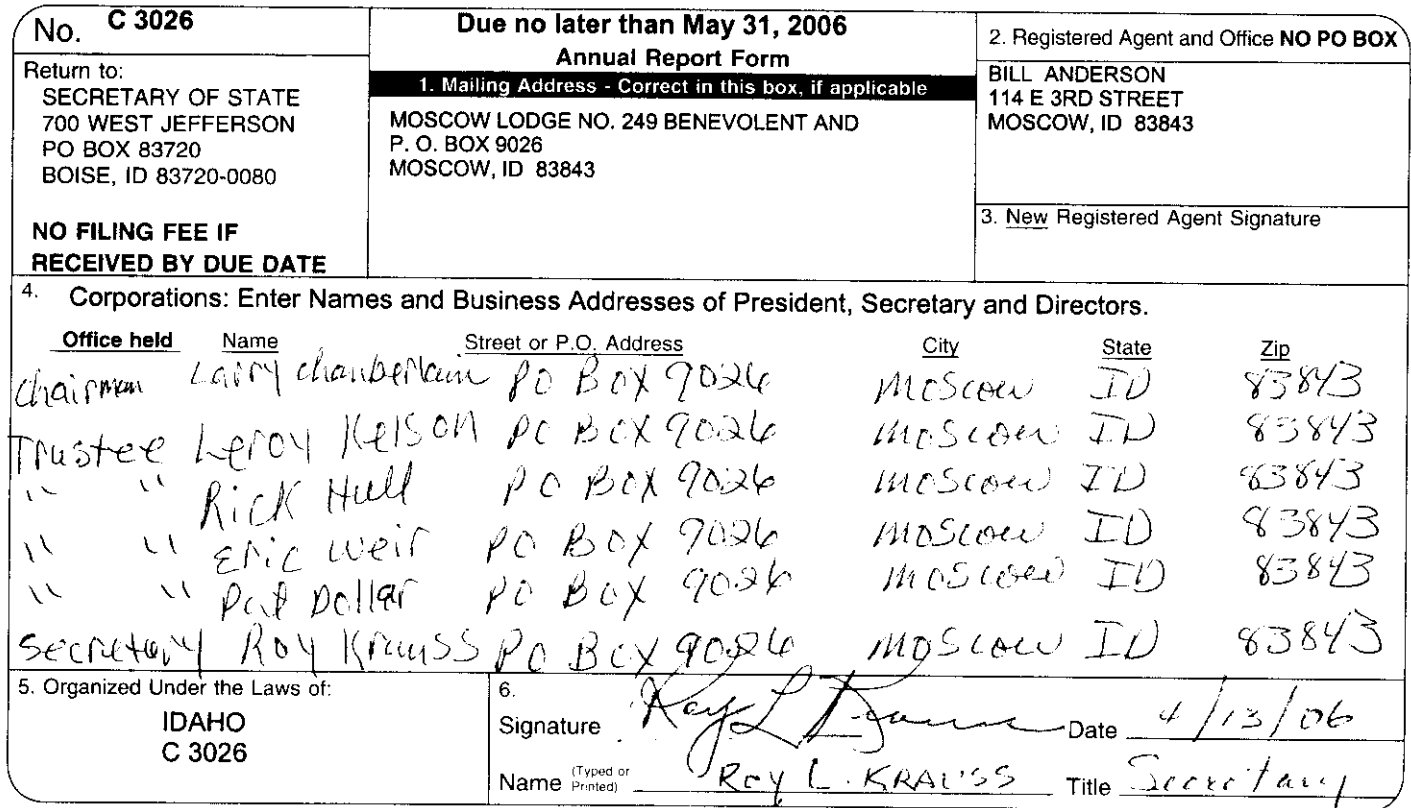 No. C 3026
Return to:
SECRETARY OF STATE
700 WEST JEFFERSON
PO BOX 83720
BOISE, ID 83720-0080
NO FILING FEE IF
RECEIVED BY DUE DATE
Due no later than May 31, 2006
Annual Report Form
1. Mailing Address - Correct in this box, if applicable
MOSCOW LODGE NO. 249 BENEVOLENT AND
P. O. BOX 9026
MOSCOW, ID 83843
2. Registered Agent and Office NO PO BOX
BILL ANDERSON
114 E 3RD STREET
MOSCOW, ID 83843
3. New Registered Agent Signature
4. Corporations: Enter Names and Business Addresses of President, Secretary and Directors.
Office held Name Street or P.O. Address City State Zip
Chairman Larry Chamberlain PO Box 9026 Moscow ID 83843
Trustee Leroy Kelson PO Box 9026 Moscow ID 83843
" " Rick Hull PO Box 9026 Moscow ID 83843
" " Eric Weir PO Box 9026 Moscow ID 83843
" " Pat Dollar PO Box 9026 Moscow ID 83843
Secretary Roy Krauss PO Box 9026 Moscow ID 83843
5. Organized Under the Laws of:
IDAHO
C 3026
6.
Signature Roy L Krauss Date 4/13/06
Name (Typed or Printed) Roy L. KRAUSS Title Secretary